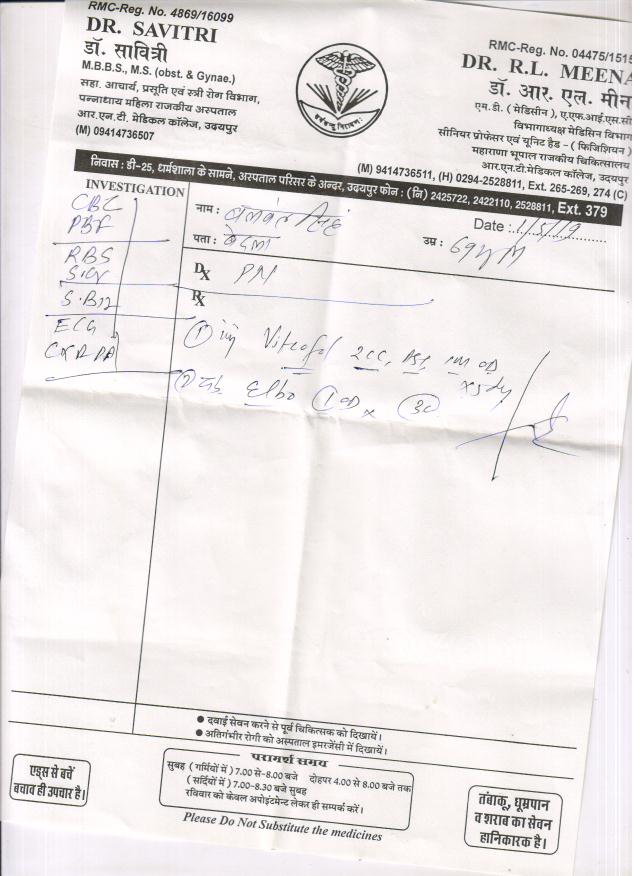 RMC-Reg. No. 4869/16099
DR. SAVITRI
डॉ. सावित्री
M.B.B.S., M.S. (obst. & Gynae.)
सहा. आचार्य, प्रसूति एवं स्त्री रोग विभाग,
पन्नाधाय महिला राजकीय अस्पताल
आर.एन.टी. मेडिकल कॉलेज, उदयपुर
(M) 09414736507
RMC-Reg. No. 04475/1515
DR. R.L. MEENA
डॉ. आर. एल. मीन
एम.डी. ( मेडिसीन ), ए.एफ.आई.एस.सी
विभागाध्यक्ष मेडिसिन विभाग
सीनियर प्रोफेसर एवं यूनिट हैड - ( फिजिशियन )
महाराणा भूपाल राजकीय चिकित्सालय
आर.एन.टी.मेडिकल कॉलेज, उदयपुर
(M) 9414736511, (H) 0294-2528811, Ext. 265-269, 274 (C)
निवास : डी-25, धर्मशाला के सामने, अस्पताल परिसर के अन्दर, उदयपुर फोन : (नि) 2425722, 2422110, 2528811, Ext. 379
INVESTIGATION
CBC
PBF
RBS
S.B12
ECG
नाम : बलवंत सिंह
Date : 1/5/19
पता : बेदला
उम्र : 69y M
Dx PN
Rx
① inj 2CC, IM OD x 5 day
② tab. Elbo ① OD x 30
● दवाई सेवन करने से पूर्व चिकित्सक को दिखायें।
● अतिगंभीर रोगी को अस्पताल इमरजेंसी में दिखायें।
परामर्श समय
सुबह ( गर्मियों में ) 7.00 से-8.00 बजे दोहपर 4.00 से 8.00 बजे तक
( सर्दियों में ) 7.00-8.30 बजे सुबह
रविवार को केवल अपोइंटमेन्ट लेकर ही सम्पर्क करें।
Please Do Not Substitute the medicines
एड्स से बचें
बचाव ही उपचार है।
तंबाकू, धूम्रपान
व शराब का सेवन
हानिकारक है।